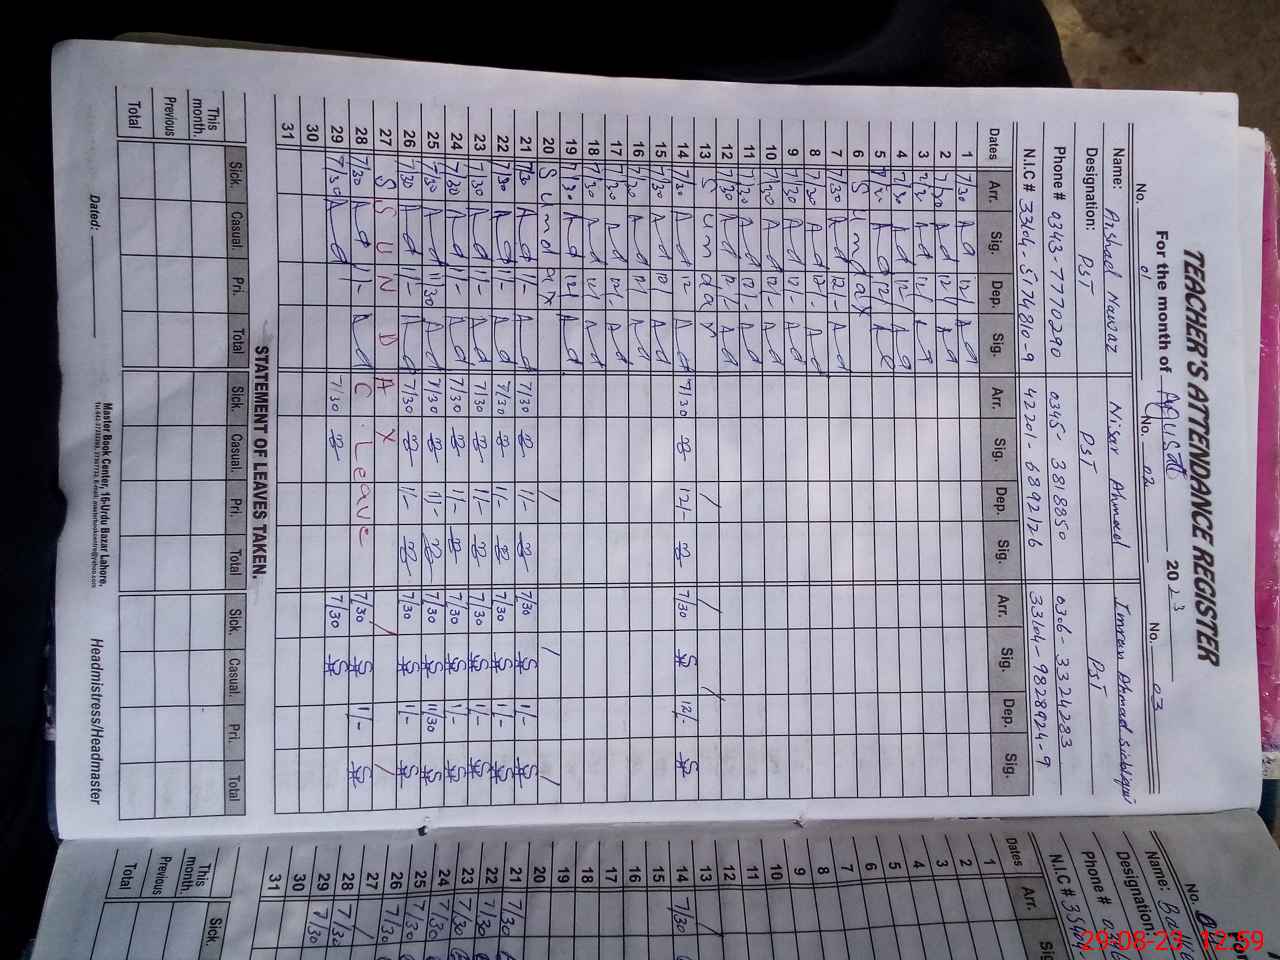 TEACHER'S ATTENDANCE REGISTER
For the month of 2023
No. 01 No. 02 No. 03
Name: Arshad Nawaz Nisar Ahmed Imran Ahmad Siddiqui
Designation: PST PST PST
Phone # 0343-7770290 0345-3818850 0306-3324283
N.I.C # 33104-5174810-9 42201-6892126 33104-9828924-9
Dates Arr. Sig. Dep. Sig. Arr. Sig. Dep. Sig. Arr. Sig. Dep. Sig.
1 7/30 Ad 12/ Ad
2 7/30 Ad 12/ Ad
3 Ad 12/
4 7/30 Ad 12/ Ad
5 Ad 12/
6 Sunday
7 7/30 Ad 12/- Ad
8 7/30 Ad 12/- Ad
9 7/30 Ad 12/- Ad
10 7/30 Ad 12/- Ad
11 7/30 Ad 12/- Ad
12 7/30 Ad 12/- Ad
13 Sunday
14 7/30 Ad 12/- Ad 7/30 12/- 7/30 12/-
15 7/30 Ad 12/ Ad
16 7/30 Ad 12/ Ad
17 7/30 Ad 12/- Ad
18 7/30 Ad 12/ Ad
19 7/30 Ad 12/ Ad
20 Sunday
21 7/30 Ad 1/- Ad 7/30 1/- 7/30 1/-
22 7/30 Ad 1/- Ad 7/30 1/- 7/30 1/-
23 7/30 Ad 1/- Ad 7/30 1/- 7/30 1/-
24 7/30 Ad 1/- Ad 7/30 1/- 7/30 1/-
25 7/30 Ad 11/30 Ad 7/30 11/- 7/30 11/30
26 7/30 Ad 1/- Ad 7/30 1/- 7/30 1/-
27 SUNDAY
28 7/30 Ad 1/- Ad C. Leave 7/30 1/-
29 7/30 Ad 7/30 7/30
30
31
STATEMENT OF LEAVES TAKEN.
Sick. Casual. Pri. Total Sick. Casual. Pri. Total Sick. Casual. Pri. Total
This month.
Previous
Total
Dated:
Master Book Center, 16-Urdu Bazar Lahore.
Headmistress/Headmaster
No.
Name:
Designation
Phone # 03
N.I.C #
Dates Arr.
1
2
3
4
5
6
7
8
9
10
11
12
13
14 7/30
15
16
17
18
19
20
21 7/30
22 7/30
23 7/30
24 7/30
25 7/30
26 7/30
27
28 7/30
29 7/30
30
31
Sick.
This month.
Previous
Total
29-08-23 12:59